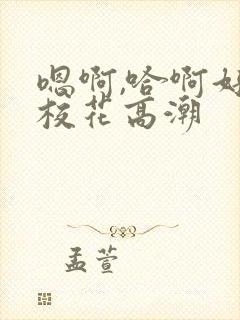 嗯啊,哈啊好
校花高潮
孟萱